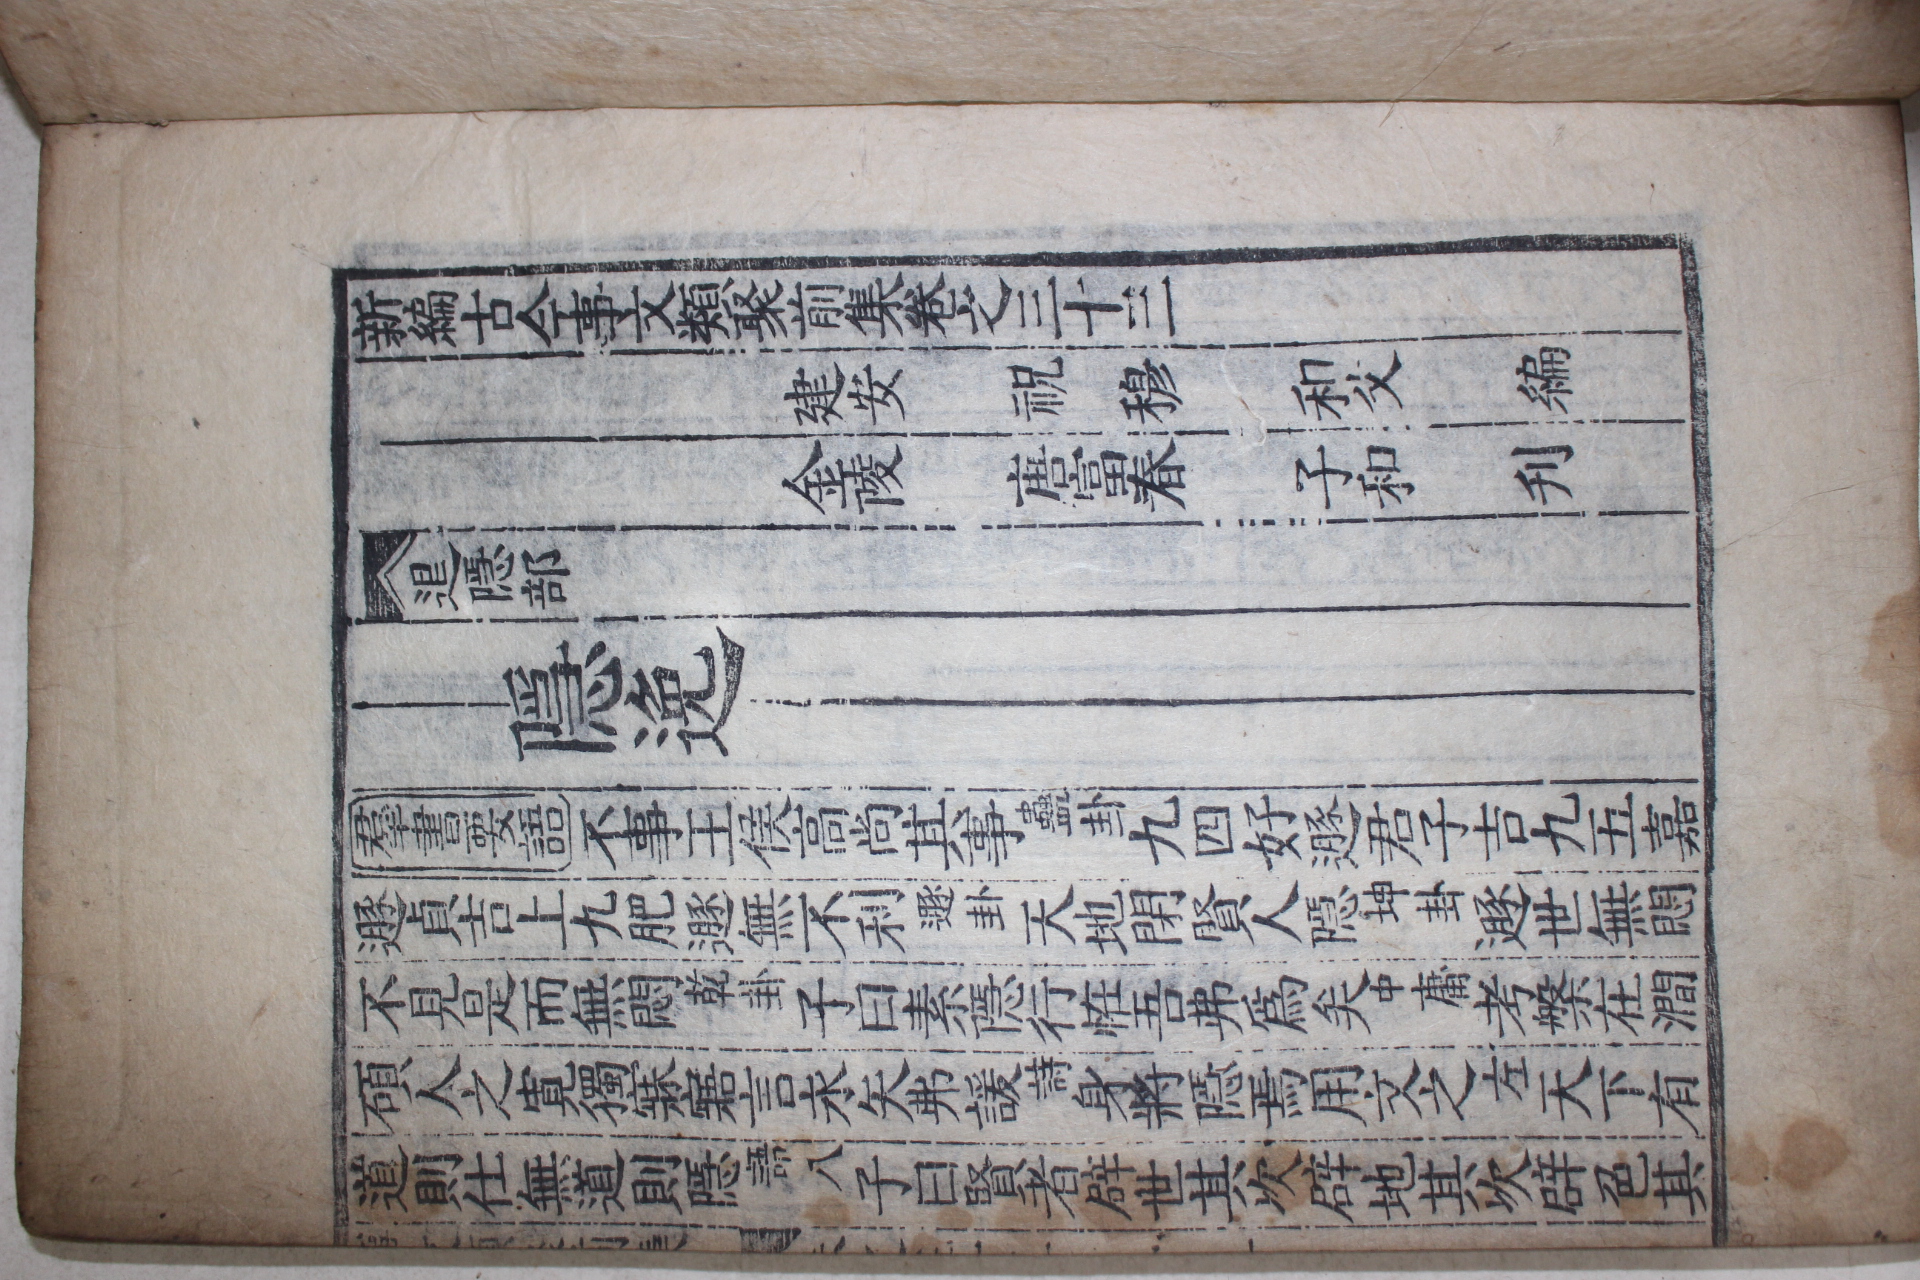 新編古今事文類聚前集卷之三十三
建安 祝 穆 和父 編
金陵 唐富春 子和 刋
退隱部
隱逸
羣書要語 不事王侯高尚其事 蠱卦 九四好遯君子吉九五嘉
遯貞吉上九肥遯無不利 遯卦 天地閉賢人隱 坤卦 遯世無悶
不見是而無悶 乾卦 子曰素隱行恠吾弗爲矣 中庸 考槃在澗
碩人之寬獨寐寤言永矢弗諼 詩 身將隱焉用文之 左 天下有
道則仕無道則隱 語八 子曰賢者辟世其次辟地其次辟色其